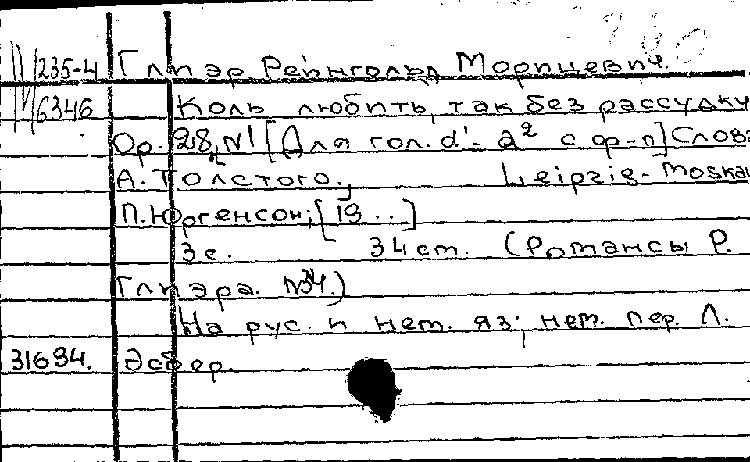 235-4 Глиэр Рейнгольд Морицевич.
6346 Коль любить, так без рассудку
Op. 28, N1 [Для гол. d¹- a² с ф-п] Слова
А. Толстого. Leipzig- Moskau
П. Юргенсон, [19 . . ]
3 с. 34 см. (Романсы Р.
Глиэра. №34.)
На рус. и нем. яз; нем. пер. Л.
31694. Эсбер.